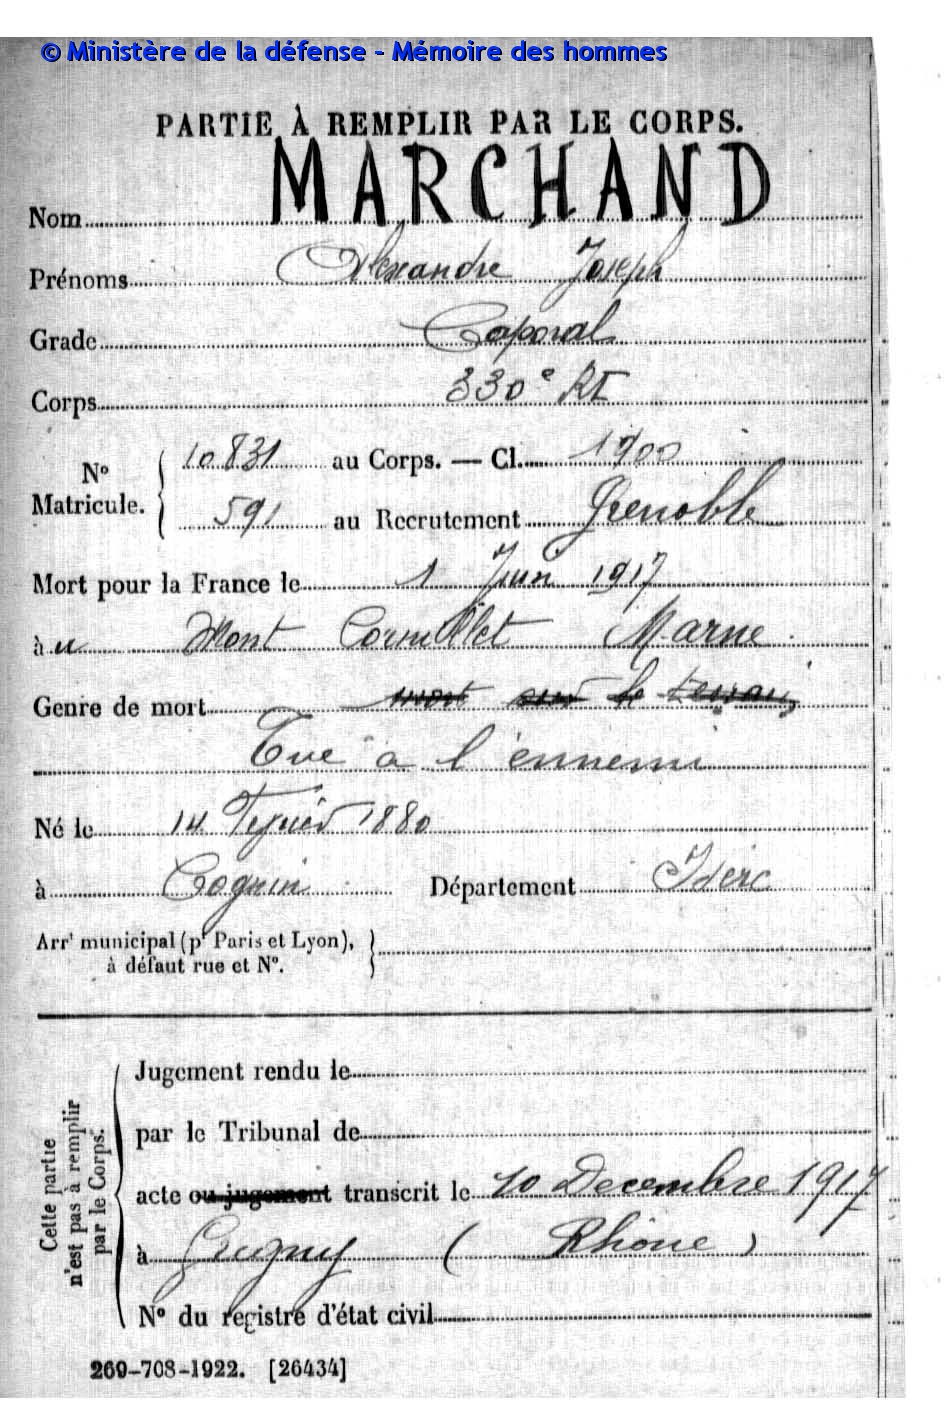 © Ministère de la défense - Mémoire des hommes
PARTIE À REMPLIR PAR LE CORPS.
Nom MARCHAND
Prénoms Alexandre Joseph
Grade Caporal
Corps 330e RI
N° Matricule. { 10831 au Corps. — Cl. 1900
591 au Recrutement Grenoble
Mort pour la France le 1 Juin 1917
à u Mont Cornillet Marne
Genre de mort mort sur le terrain
Tué à l'ennemi
Né le 14 Février 1880
à Cognin Département Isère
Arrt municipal (pr Paris et Lyon),
à défaut rue et N°.
Cette partie n'est pas à remplir par le Corps.
Jugement rendu le
par le Tribunal de
acte ou jugement transcrit le 10 Decembre 1917
à Grigny (Rhône)
N° du registre d'état civil
269-708-1922. [26434]